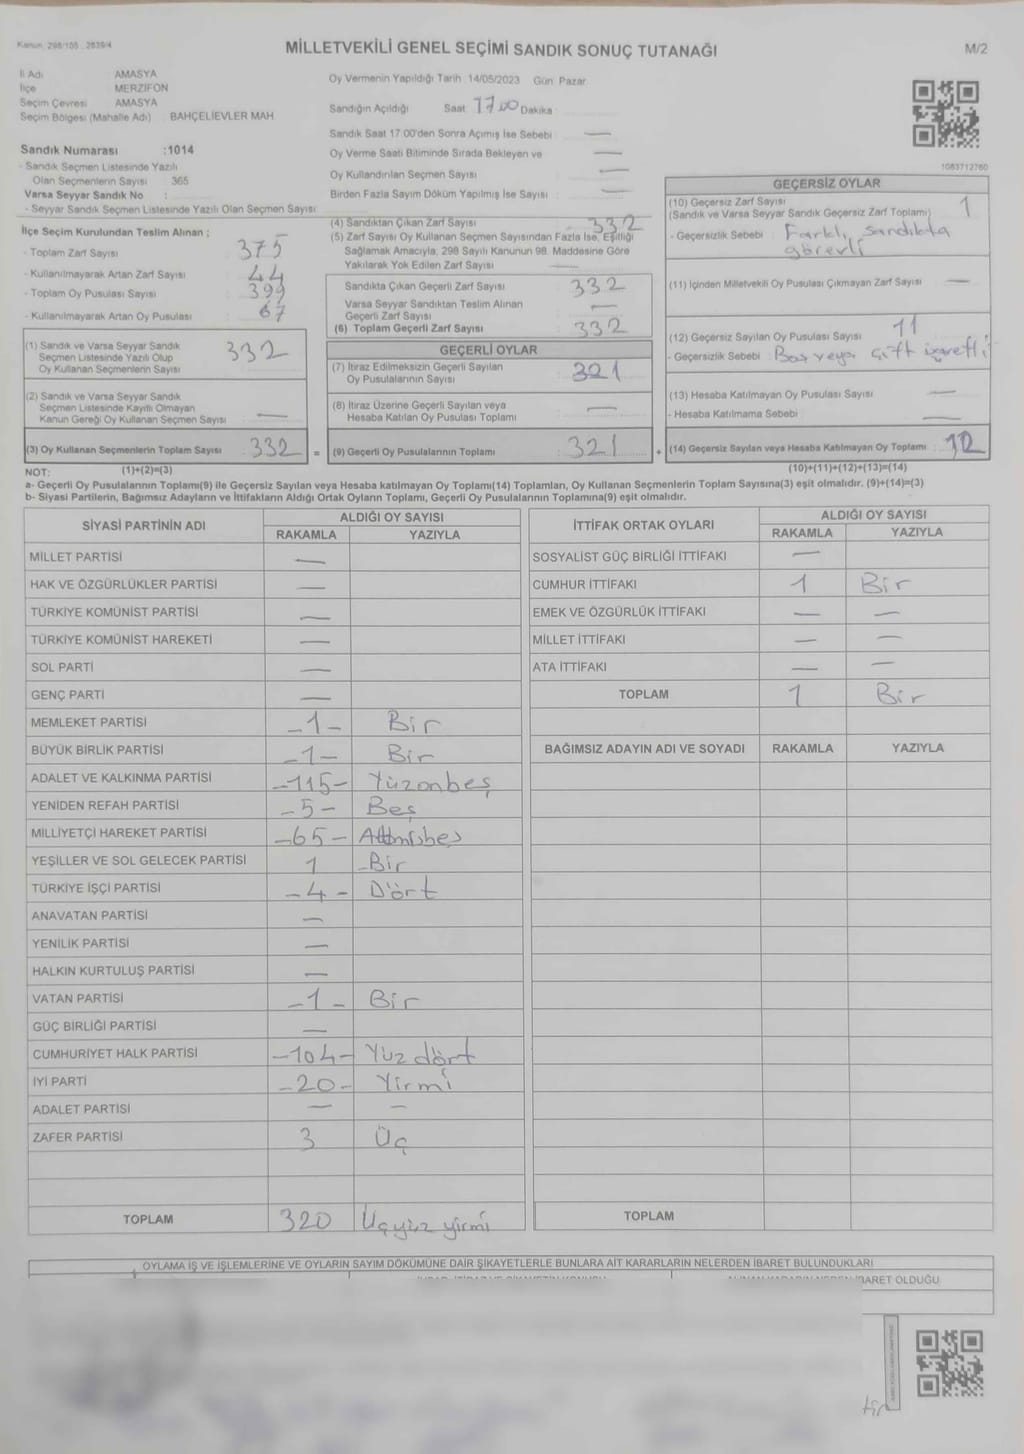 Kanun: 298/105 , 2839/4
MİLLETVEKİLİ GENEL SEÇİMİ SANDIK SONUÇ TUTANAĞI
M/2
İl Adı AMASYA
İlçe MERZİFON
Seçim Çevresi AMASYA
Seçim Bölgesi (Mahalle Adı) : BAHÇELİEVLER MAH
Sandık Numarası :1014
- Sandık Seçmen Listesinde Yazılı
Olan Seçmenlerin Sayısı : 365
Varsa Seyyar Sandık No :
- Seyyar Sandık Seçmen Listesinde Yazılı Olan Seçmen Sayısı:
İlçe Seçim Kurulundan Teslim Alınan ;
- Toplam Zarf Sayısı : 375
- Kullanılmayarak Artan Zarf Sayısı : 44
- Toplam Oy Pusulası Sayısı : 399
- Kullanılmayarak Artan Oy Pusulası : 67
(1) Sandık ve Varsa Seyyar Sandık
Seçmen Listesinde Yazılı Olup
Oy Kullanan Seçmenlerin Sayısı 332
(2) Sandık ve Varsa Seyyar Sandık
Seçmen Listesinde Kayıtlı Olmayan
Kanun Gereği Oy Kullanan Seçmen Sayısı —
(3) Oy Kullanan Seçmenlerin Toplam Sayısı 332 =
Oy Vermenin Yapıldığı Tarih : 14/05/2023 Gün: Pazar
Sandığın Açıldığı Saat: 17 00 Dakika :
Sandık Saat 17.00'den Sonra Açılmış İse Sebebi : —
Oy Verme Saati Bitiminde Sırada Bekleyen ve —
Oy Kullandırılan Seçmen Sayısı : —
Birden Fazla Sayım Döküm Yapılmış İse Sayısı : —
(4) Sandıktan Çıkan Zarf Sayısı : 332
(5) Zarf Sayısı Oy Kullanan Seçmen Sayısından Fazla İse, Eşitliği
Sağlamak Amacıyla, 298 Sayılı Kanunun 98. Maddesine Göre
Yakılarak Yok Edilen Zarf Sayısı : —
Sandıkta Çıkan Geçerli Zarf Sayısı 332
Varsa Seyyar Sandıktan Teslim Alınan
Geçerli Zarf Sayısı —
(6) Toplam Geçerli Zarf Sayısı 332
GEÇERLİ OYLAR
(7) İtiraz Edilmeksizin Geçerli Sayılan
Oy Pusulalarının Sayısı 321
(8) İtiraz Üzerine Geçerli Sayılan veya
Hesaba Katılan Oy Pusulası Toplamı —
(9) Geçerli Oy Pusulalarının Toplamı : 321 +
1083712760
GEÇERSİZ OYLAR
(10) Geçersiz Zarf Sayısı
(Sandık ve Varsa Seyyar Sandık Geçersiz Zarf Toplamı) : 1
- Geçersizlik Sebebi : Farklı, sandıkta
görevli
(11) İçinden Milletvekili Oy Pusulası Çıkmayan Zarf Sayısı : —
(12) Geçersiz Sayılan Oy Pusulası Sayısı : 11
- Geçersizlik Sebebi : Boş veya çift işaretli
(13) Hesaba Katılmayan Oy Pusulası Sayısı : —
- Hesaba Katılmama Sebebi : —
(14) Geçersiz Sayılan veya Hesaba Katılmayan Oy Toplamı :
NOT: (1)+(2)=(3)
(10)+(11)+(12)+(13)=(14)
a- Geçerli Oy Pusulalarının Toplamı(9) ile Geçersiz Sayılan veya Hesaba katılmayan Oy Toplamı(14) Toplamları, Oy Kullanan Seçmenlerin Toplam Sayısına(3) eşit olmalıdır. (9)+(14)=(3)
b- Siyasi Partilerin, Bağımsız Adayların ve İttifakların Aldığı Ortak Oyların Toplamı, Geçerli Oy Pusulalarının Toplamına(9) eşit olmalıdır.
SİYASİ PARTİNİN ADI ALDIĞI OY SAYISI
RAKAMLA YAZIYLA
MİLLET PARTİSİ —
HAK VE ÖZGÜRLÜKLER PARTİSİ —
TÜRKİYE KOMÜNİST PARTİSİ —
TÜRKİYE KOMÜNİST HAREKETİ —
SOL PARTİ —
GENÇ PARTİ —
MEMLEKET PARTİSİ -1- Bir
BÜYÜK BİRLİK PARTİSİ -1- Bir
ADALET VE KALKINMA PARTİSİ -115- Yüzonbeş
YENİDEN REFAH PARTİSİ -5- Beş
MİLLİYETÇİ HAREKET PARTİSİ -65- Altmışbeş
YEŞİLLER VE SOL GELECEK PARTİSİ 1 -Bir
TÜRKİYE İŞÇİ PARTİSİ -4- Dört
ANAVATAN PARTİSİ —
YENİLİK PARTİSİ —
HALKIN KURTULUŞ PARTİSİ —
VATAN PARTİSİ -1- Bir
GÜÇ BİRLİĞİ PARTİSİ —
CUMHURİYET HALK PARTİSİ -104- Yüz dört
İYİ PARTİ -20- Yirmi
ADALET PARTİSİ — —
ZAFER PARTİSİ 3 Üç
TOPLAM 320 Üçyüz yirmi
İTTİFAK ORTAK OYLARI ALDIĞI OY SAYISI
RAKAMLA YAZIYLA
SOSYALİST GÜÇ BİRLİĞİ İTTİFAKI —
CUMHUR İTTİFAKI 1 Bir
EMEK VE ÖZGÜRLÜK İTTİFAKI — —
MİLLET İTTİFAKI — —
ATA İTTİFAKI — —
TOPLAM 1 Bir
BAĞIMSIZ ADAYIN ADI VE SOYADI RAKAMLA YAZIYLA
TOPLAM
OYLAMA İŞ VE İŞLEMLERİNE VE OYLARIN SAYIM DÖKÜMÜNE DAİR ŞİKAYETLERLE BUNLARA AİT KARARLARIN NELERDEN İBARET BULUNDUKLARI
İBARET OLDUĞU